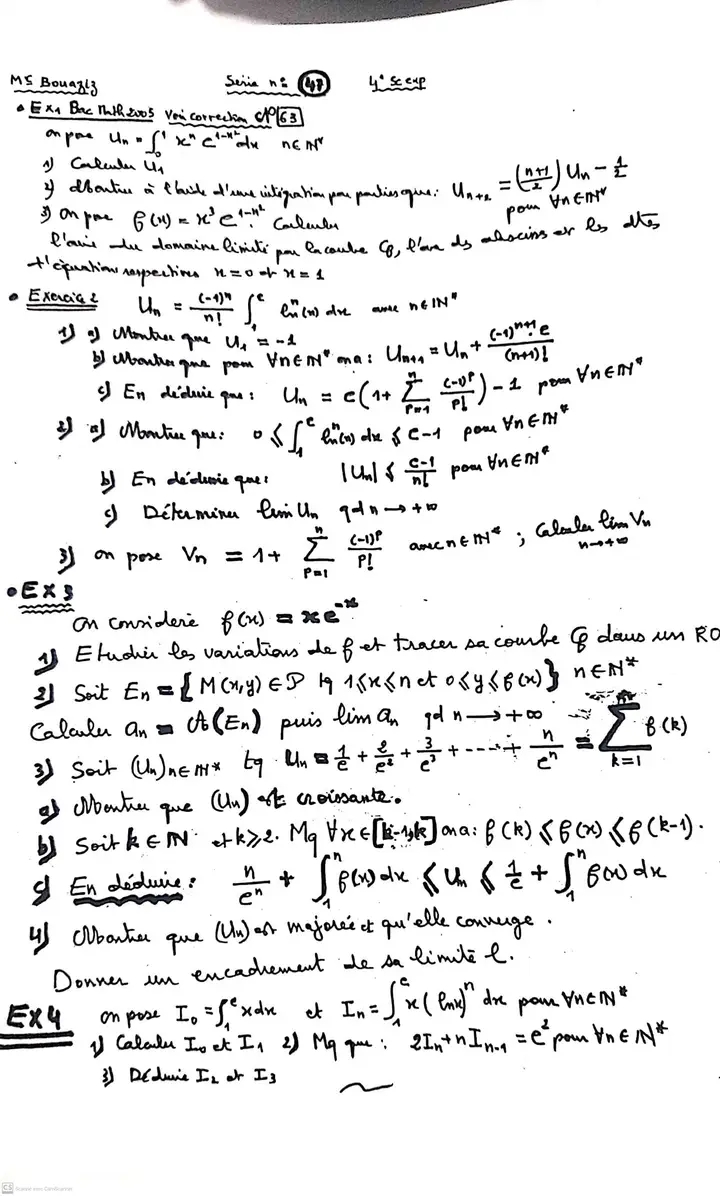 MS Bouaziz Serie n°: 47 4° Sc exp
• Ex1 Bac Math 2005 Voir correction N° 63
on pose Un = ∫₀¹ xⁿ e^(1-x²) dx n∈IN*
1) Calculer U₁
2) Montrer à l'aide d'une intégration par parties que: Un+2 = ((n+1)/2) Un - 1/2 pour ∀n∈IN*
3) on pose f(x) = x³ e^(1-x²). Calculer
l'aire du domaine limité par la courbe Cf, l'axe des abscisses et les dtes
d'équations respectives x=0 et x=1
• Exercice 2 Un = ((-1)ⁿ/n!) ∫₁ᵉ lnⁿ(x) dx avec n∈IN*
1) a) Montrer que U₁ = -1
b) Montrer que pour ∀n∈IN* on a: Un+1 = Un + ((-1)ⁿ⁺¹ e)/(n+1)!
c) En déduire que: Un = e(1+ Σ_{P=1}^{n} (-1)ᴾ/P!) - 1 pour ∀n∈IN*
2) a) Montrer que: 0 ≤ ∫₁ᵉ lnⁿ(x) dx ≤ e-1 pour ∀n∈IN*
b) En déduire que: |Un| ≤ (e-1)/n! pour ∀n∈IN*
c) Déterminer lim Un qd n → +∞
3) on pose Vn = 1+ Σ_{P=1}^{n} (-1)ᴾ/P! avec n∈IN* ; Calculer lim Vn n→+∞
• EX3
On considère f(x) = xe⁻ˣ
1) Etudier les variations de f et tracer sa courbe Cf dans un RO
2) Soit En = {M(x,y) ∈ P tq 1≤x≤n et 0≤y≤f(x)} n∈N*
Calculer an = A(En) puis lim an qd n → +∞
3) Soit (Un)n∈IN* tq Un = 1/e + 2/e² + 3/e³ + ---- + n/eⁿ = Σ_{k=1}^{n} f(k)
a) Montrer que (Un) est croissante.
b) Soit k∈IN et k≥2. Mq ∀x∈[k-1,k] on a: f(k) ≤ f(x) ≤ f(k-1).
c) En déduire: n/eⁿ + ∫₁ⁿ f(x) dx ≤ Un ≤ 1/e + ∫₁ⁿ f(x) dx
4) Montrer que (Un) est majorée et qu'elle converge.
Donner un encadrement de sa limite l.
EX4 on pose I₀ = ∫₁ᵉ x dx et In = ∫₁ᵉ x(lnx)ⁿ dx pour ∀n∈IN*
1) Calculer I₀ et I₁ 2) Mq que: 2In + nIn-1 = e² pour ∀n∈IN*
3) Déduire I₂ et I₃
CS Scanné avec CamScanner